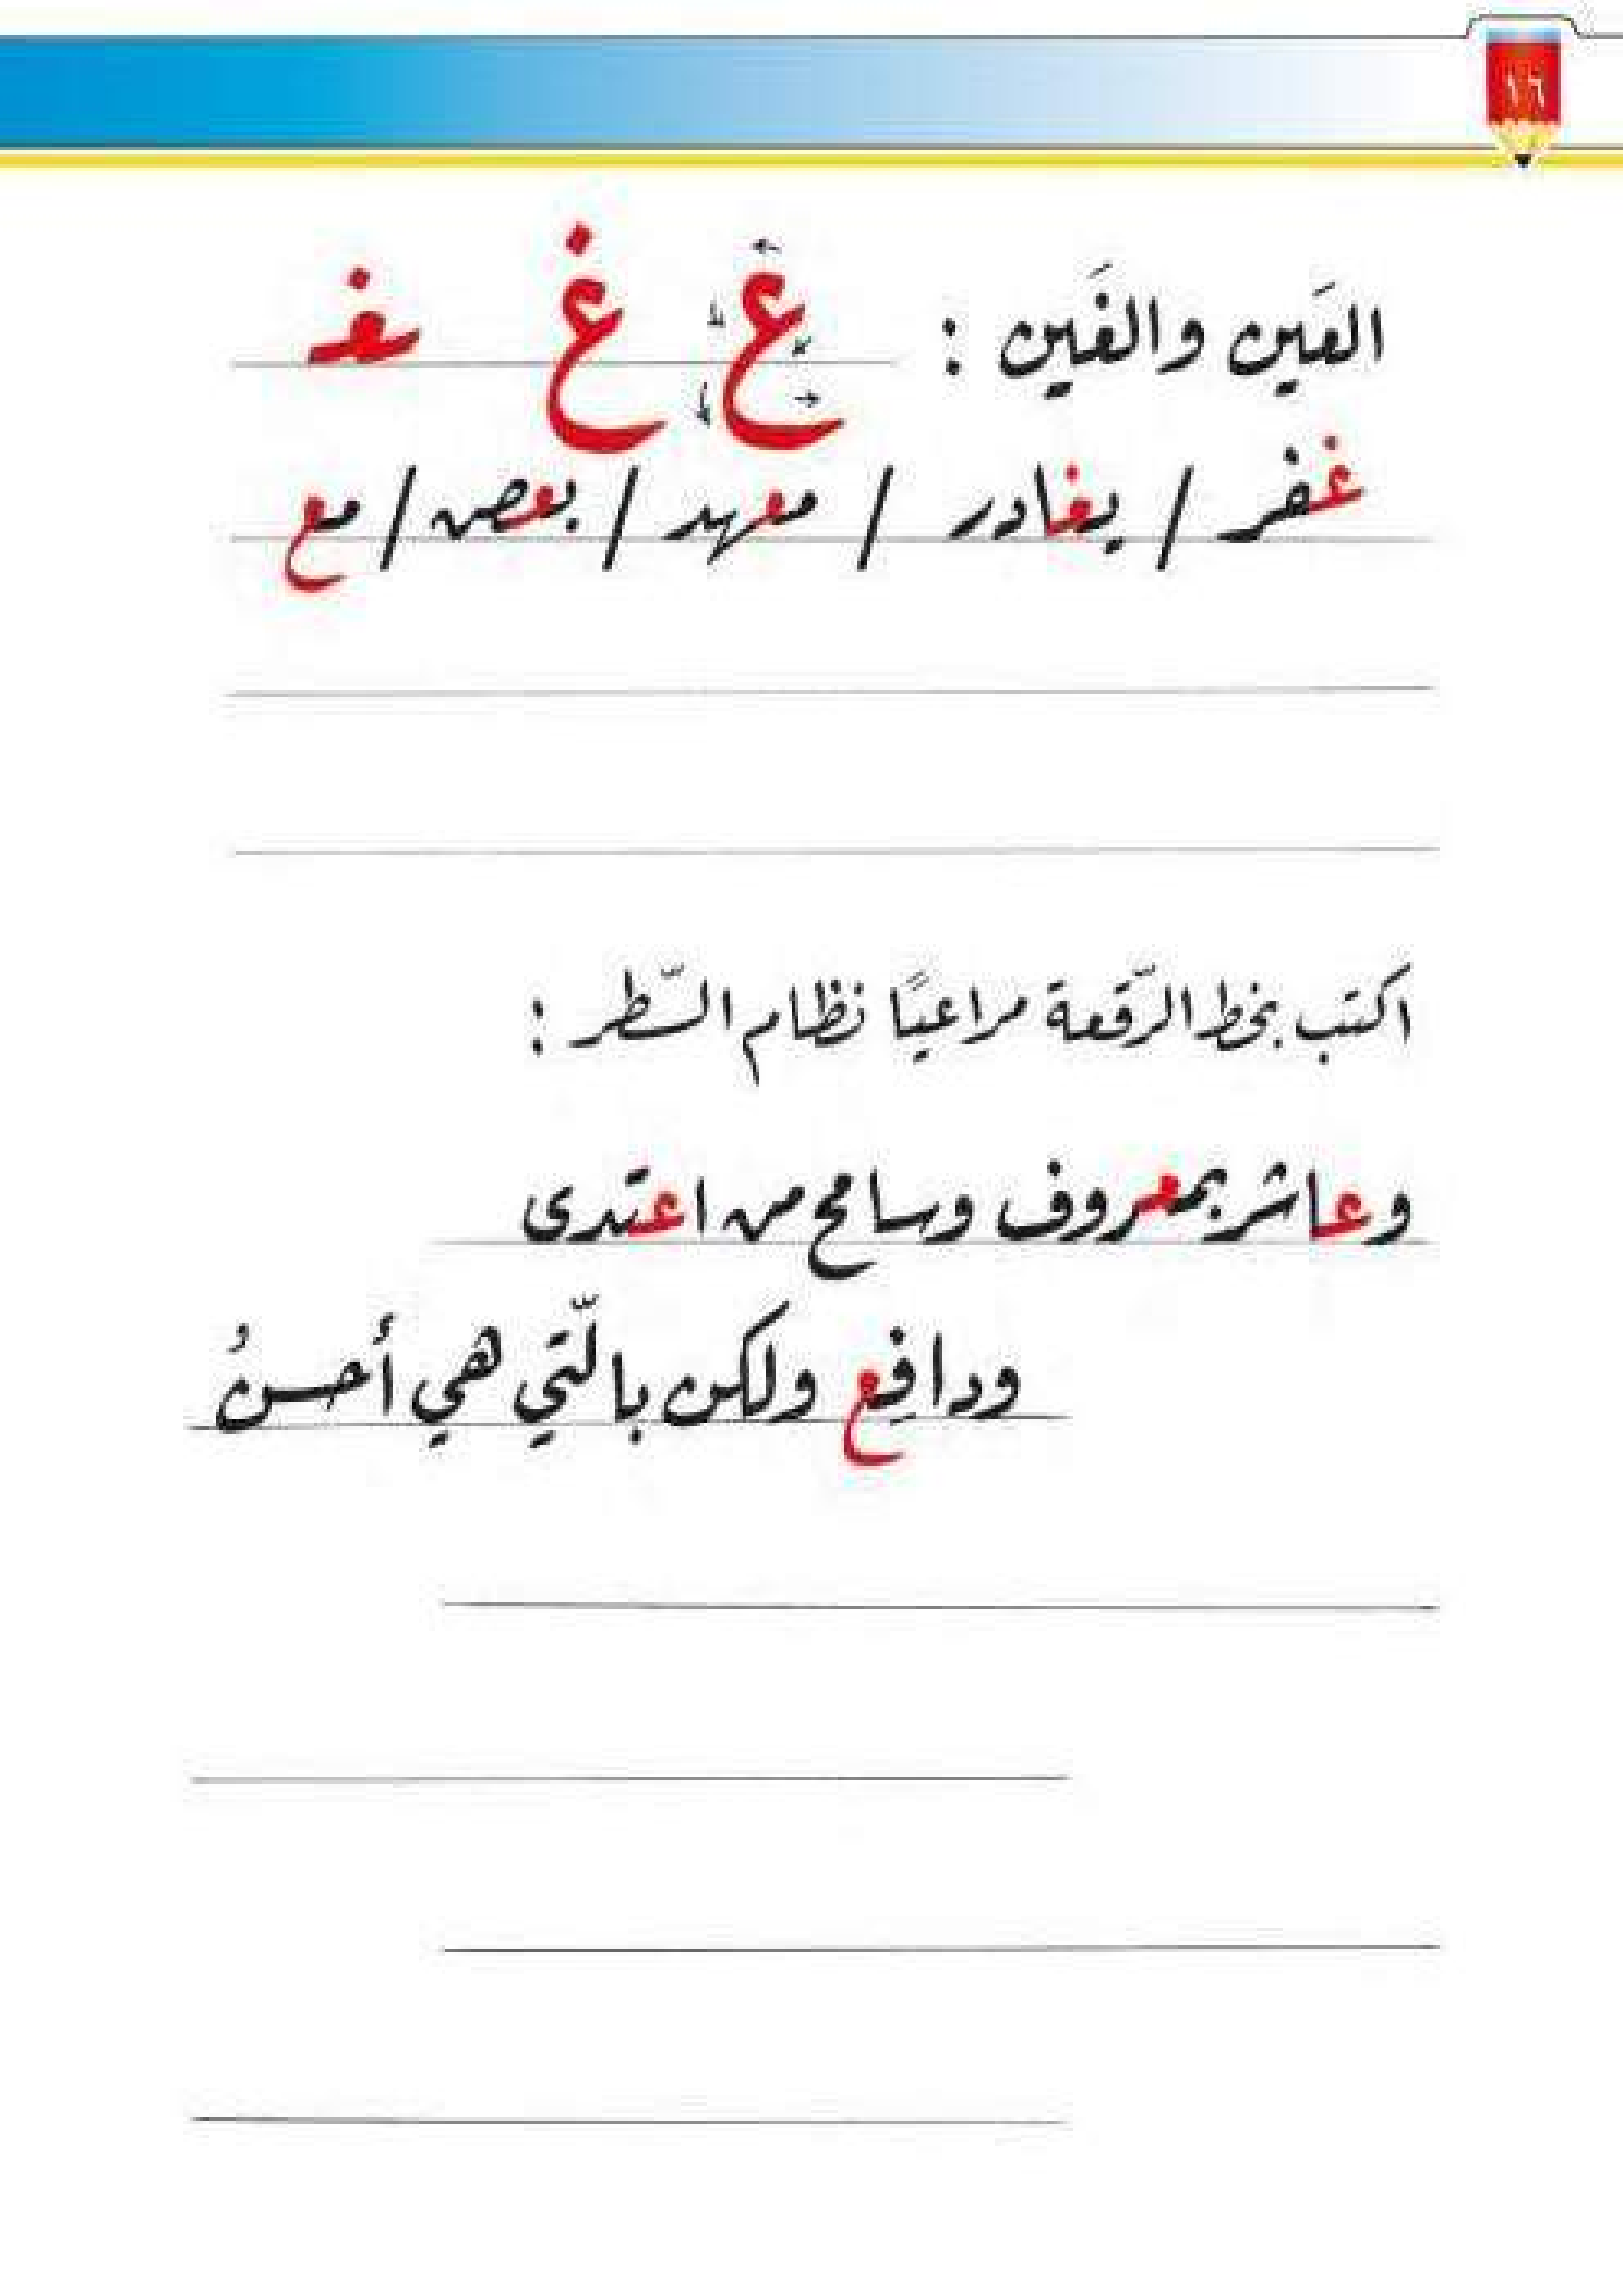 ١٦
العَين والغَين : ع غ ـغـ
غفر / يغادر / معهد / بعض / مع
اكتب بخط الرّقعة مراعيًا نظام السّطر :
وعاشر بمعروف وسامح من اعتدى
ودافِع ولكن بالّتي هي أحسنُ